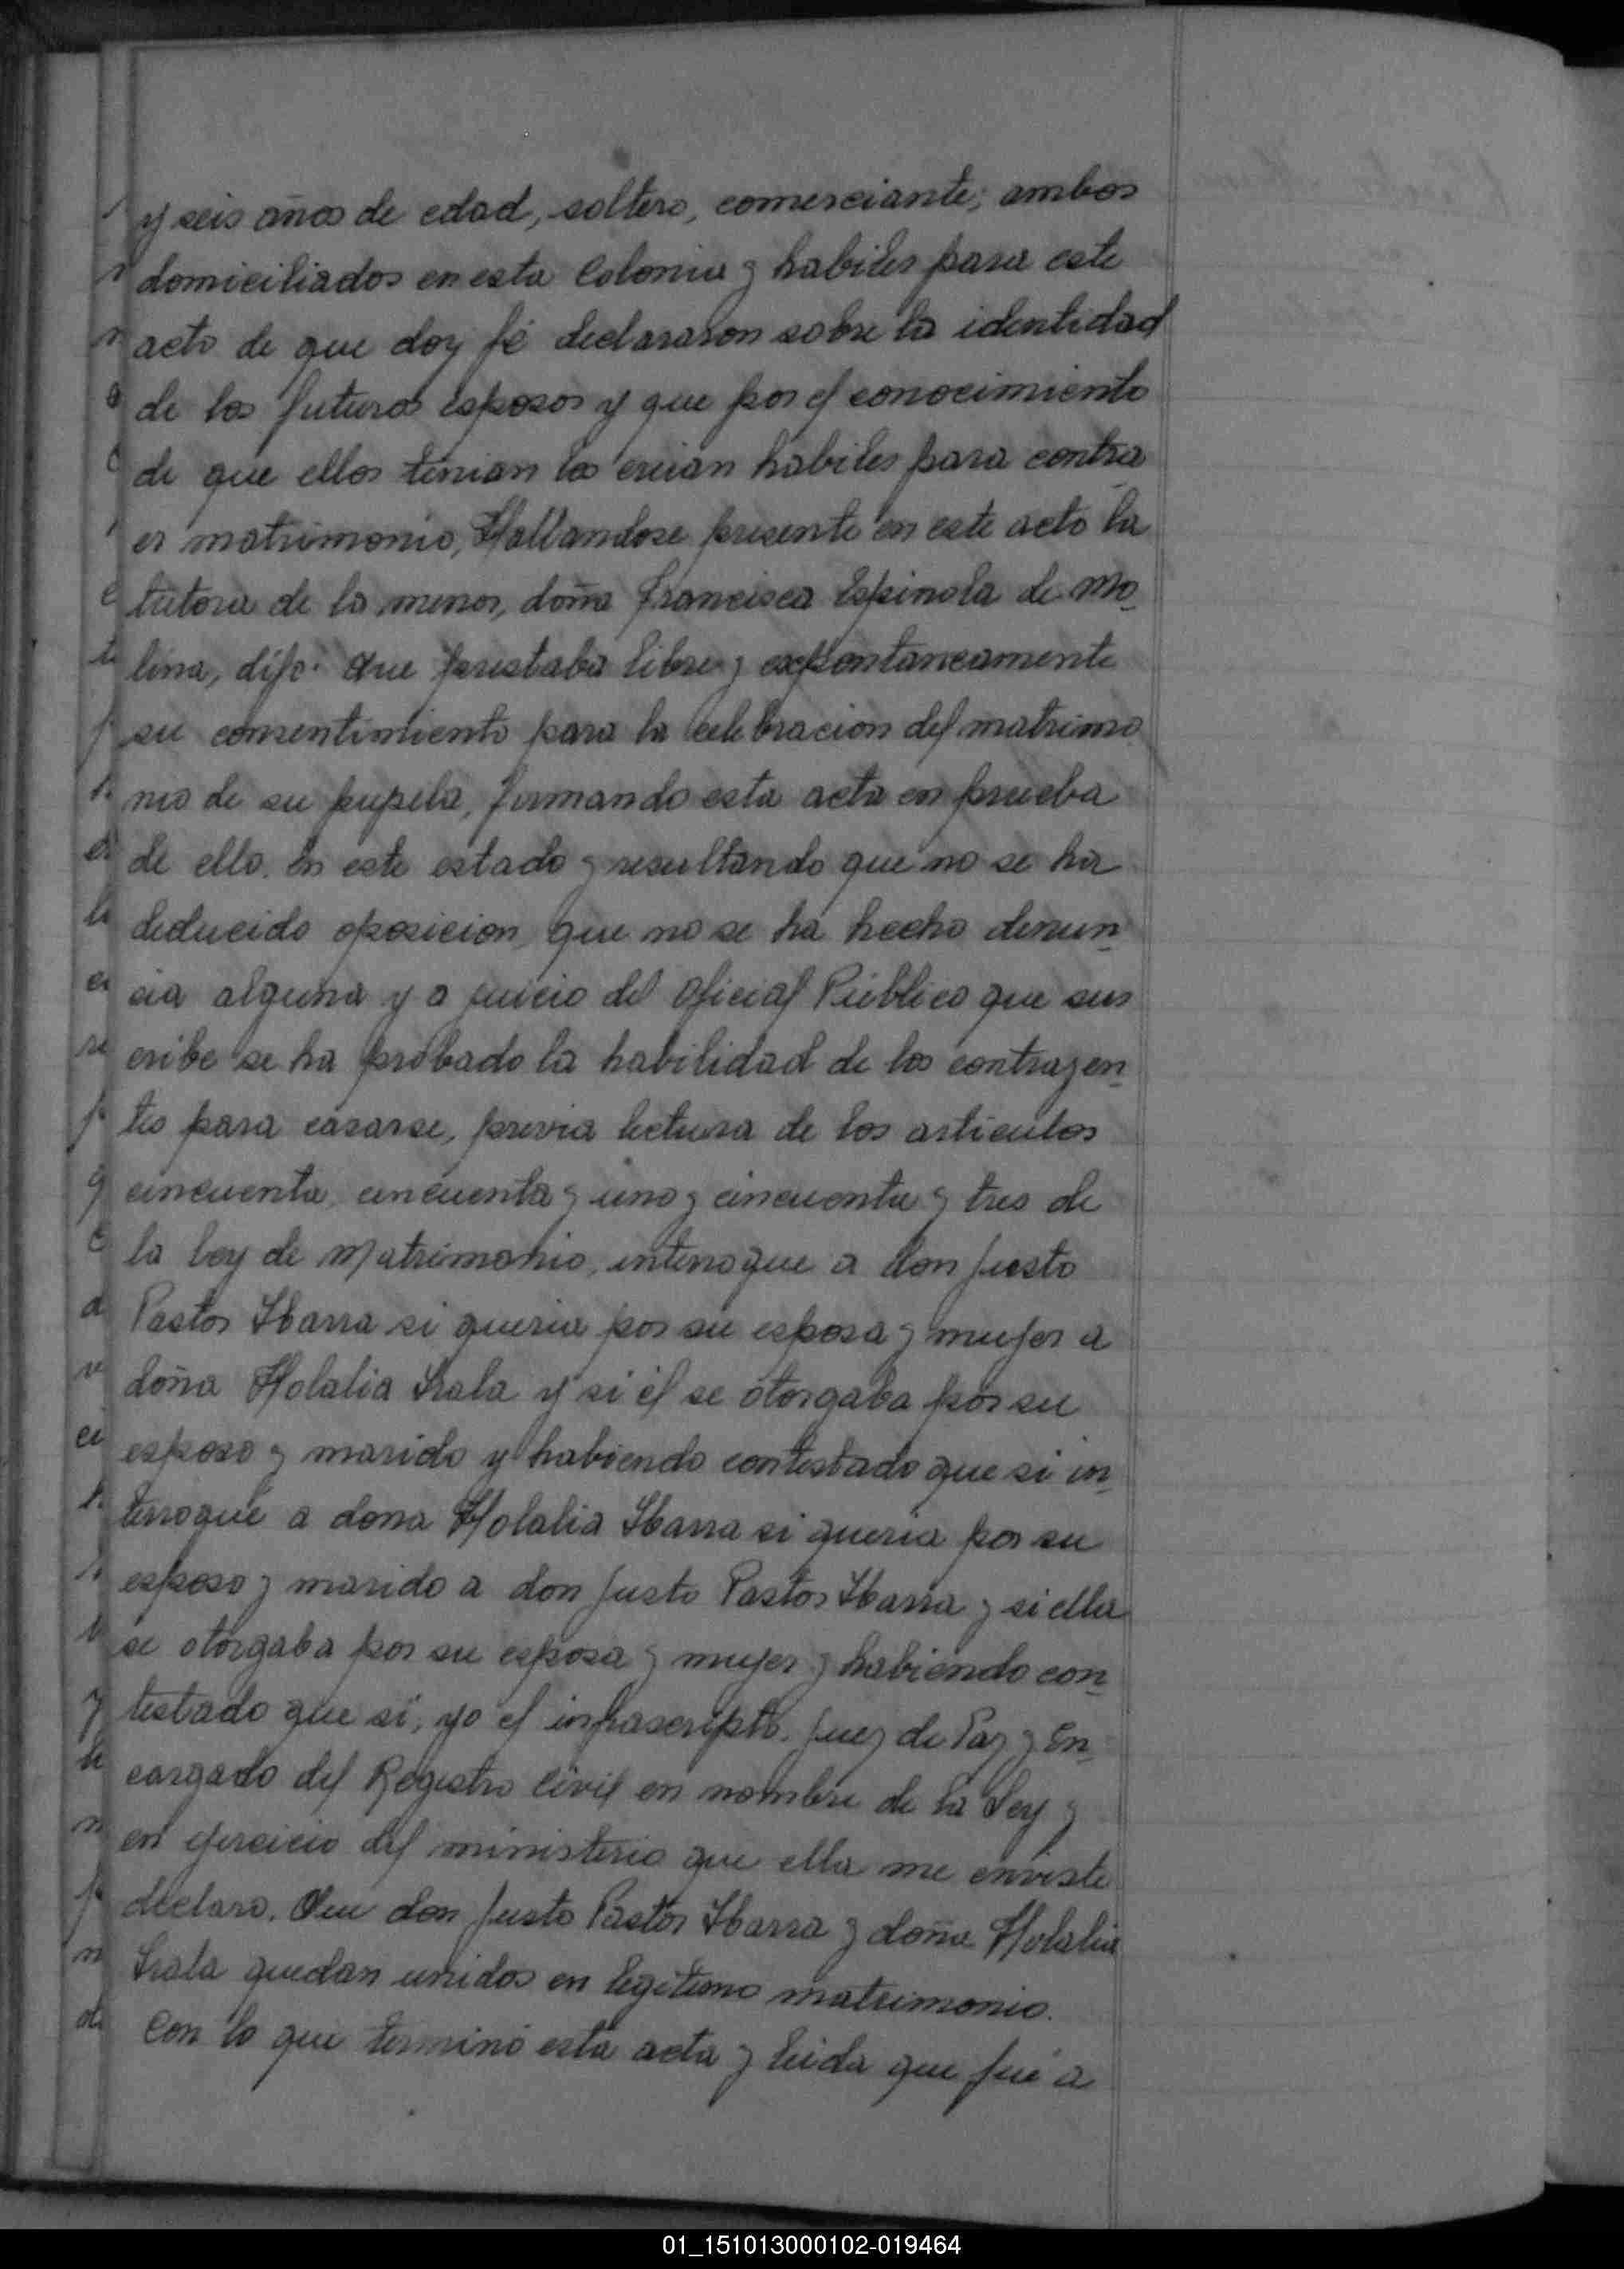 y seis años de edad, soltero, comerciante; ambos
domiciliados en esta Colonia y habiles para este
acto de que doy fé declararon sobre la identidad
de los futuros esposos y que por el conocimiento
de que ellos tenian los creian habiles para contra
er matrimonio, Hallandose presente en este acto la
tutora de la menor, doña Francisca Espinola de Mo_
lina, dijo: Que prestaba libre y expontaneamente
su consentimiento para la celebracion del matrimo
nio de su pupila, firmando esta acta en prueba
de ello. En este estado y resultando que no se ha
deducido oposicion, que no se ha hecho denun_
cia alguna y a juicio del Oficial Público que sus
cribe se ha probado la habilidad de los contrayen_
tes para casarse, previa lectura de los articulos
cincuenta, cincuenta y uno y cincuenta y tres de
la Ley de Matrimonio, interrogue a don Justo
Pastor Ibarra si queria por su esposa y mujer a
doña Holalia Irala y si él se otorgaba por su
esposo y marido y habiendo contestado que si in_
terrogué a dona Holalia Ibarra si queria por su
esposo y marido a don Justo Pastor Ibarra y si ella
se otorgaba por su esposa y mujer y habiendo con_
testado que si, yo el infrascripto. Juez de Paz y En_
cargado del Registro Civil en nombre de la Ley y
en ejercicio del ministerio que ella me enviste
declaro. Que don Justo Pastor Ibarra y doña Holalia
Irala quedan unidos en legitimo matrimonio.
Con lo que terminó esta acta y leida que fué a
01_151013000102-019464